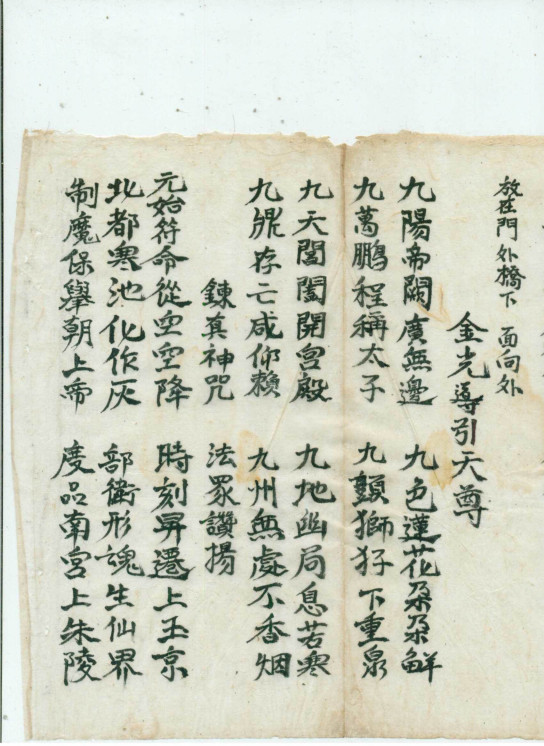 放在門外橋下 面向外
金光導引天尊
九陽帝闕廣無邊 九色蓮花朵朵鮮
九萬鵬程稱太子 九頭獅子下重泉
九天閶闔開宮殿 九地幽局息苦寒
九鼎存亡咸仰賴 九州無處不香烟
鍊真神咒 法眾讚揚
元始符命從空降 時刻昇遷上玉京
北都寒池化作灰 部衛形魂生仙界
制魔保舉朝上帝 度品南宮上朱陵